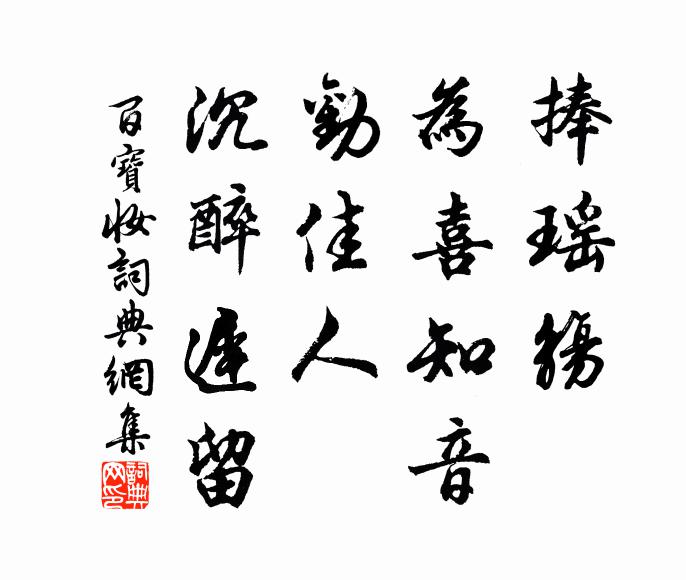 捧瑶觴
為喜知音
勸佳人
沉醉遲留
百寶妝詞典網集
詞典网印